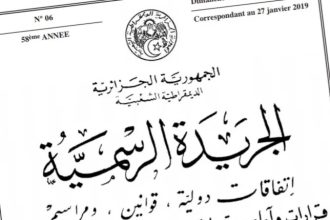 N° 06
58ème ANNEE
Correspondant au 27 janvier 2019
الجمهورية الجزائرية
الديمقراطية الشعبية
الجريدة الرسمية
إتفاقات دولية، قوانين، ومراسيم